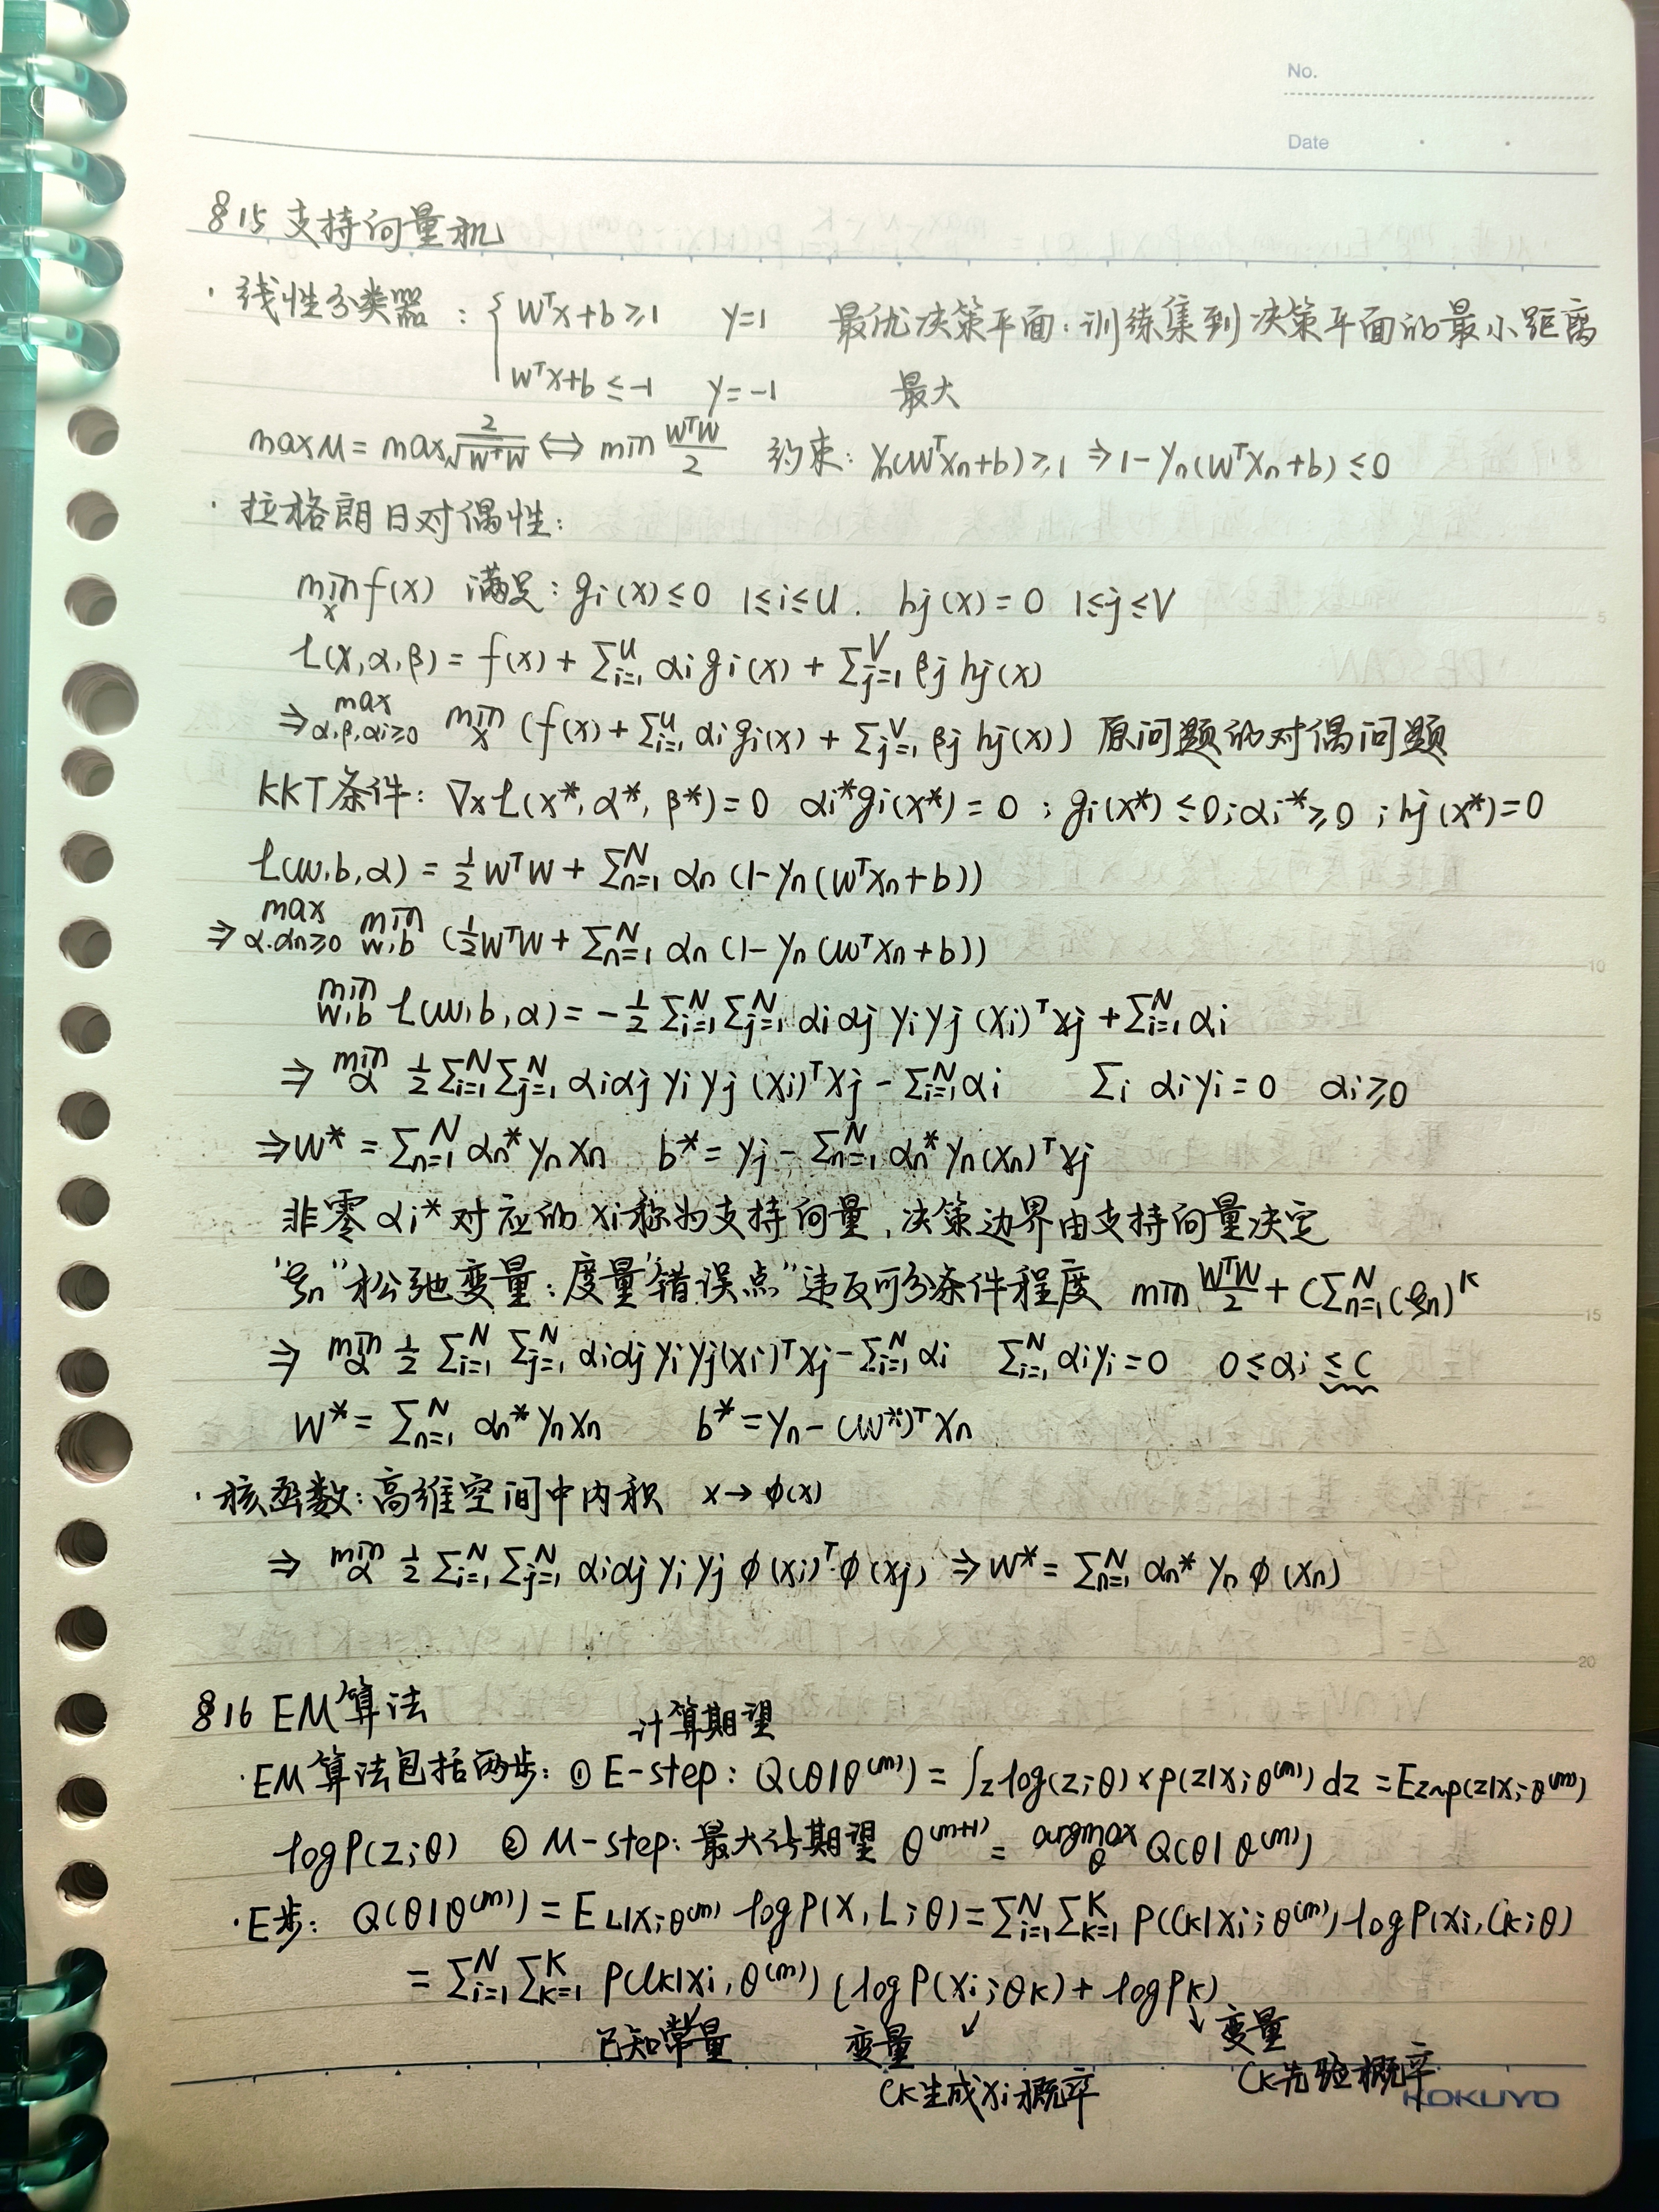 No.
Date
§15 支持向量机
· 线性分类器：{ wᵀx+b≥1 y=1 最优决策平面：训练集到决策平面的最小距离
wᵀx+b≤-1 y=-1 最大
max M = max 2/√(wᵀw) ⇔ min wᵀw/2 约束：yn(wᵀxn+b)≥1 ⇒ 1-yn(wᵀxn+b)≤0
· 拉格朗日对偶性：
min_x f(x) 满足：gi(x)≤0 1≤i≤U. hj(x)=0 1≤j≤V
L(x,α,β) = f(x) + Σ_{i=1}^U αi gi(x) + Σ_{j=1}^V βj hj(x)
⇒ max_{α,β,αi≥0} min_x (f(x) + Σ_{i=1}^U αi gi(x) + Σ_{j=1}^V βj hj(x)) 原问题的对偶问题
KKT条件：∇xL(x*,α*,β*)=0 αi*gi(x*)=0 ; gi(x*)≤0; αi*≥0 ; hj(x*)=0
L(w,b,α) = ½wᵀw + Σ_{n=1}^N αn(1-yn(wᵀxn+b))
⇒ max_{α.αn≥0} min_{w,b} (½wᵀw + Σ_{n=1}^N αn(1-yn(wᵀxn+b))
min_{w,b} L(w,b,α) = -½ Σ_{i=1}^N Σ_{j=1}^N αiαj yiyj (xi)ᵀxj + Σ_{i=1}^N αi
⇒ min_α ½ Σ_{i=1}^N Σ_{j=1}^N αiαj yiyj (xi)ᵀxj - Σ_{i=1}^N αi Σi αiyi=0 αi≥0
⇒ w* = Σ_{n=1}^N αn* yn xn b* = yj - Σ_{n=1}^N αn* yn(xn)ᵀxj
非零αi*对应的xi称为支持向量，决策边界由支持向量决定
"ξn"松弛变量：度量"错误点"违反可分条件程度 min wᵀw/2 + C Σ_{n=1}^N (ξn)^K
⇒ min_α ½ Σ_{i=1}^N Σ_{j=1}^N αiαj yiyj(xi)ᵀxj - Σ_{i=1}^N αi Σ_{i=1}^N αiyi=0 0≤αi≤C
w* = Σ_{n=1}^N αn* yn xn b* = yn - (w*)ᵀxn
· 核函数：高维空间中内积 x→φ(x)
⇒ min_α ½ Σ_{i=1}^N Σ_{j=1}^N αiαj yiyj φ(xi)ᵀ·φ(xj) ⇒ w* = Σ_{n=1}^N αn* yn φ(xn)
§16 EM算法
计算期望
· EM算法包括两步：① E-step：Q(θ|θ^(m)) = ∫z log(z;θ)×p(z|x;θ^(m)) dz = E_{z~p(z|x;θ^(m))}
log P(z;θ) ② M-step：最大化期望 θ^(m+1) = argmax_θ Q(θ|θ^(m))
· E步： Q(θ|θ^(m)) = E_{L|X;θ^(m)} log P(X,L;θ) = Σ_{i=1}^N Σ_{k=1}^K P(Ck|xi;θ^(m)) log P(xi,Ck;θ)
= Σ_{i=1}^N Σ_{k=1}^K P(Ck|xi,θ^(m)) (log P(xi;θk) + log Pk)
已知常量 变量 ↙ ↘ 变量
Ck生成xi概率 Ck先验概率
KOKUYO
5
10
15
20